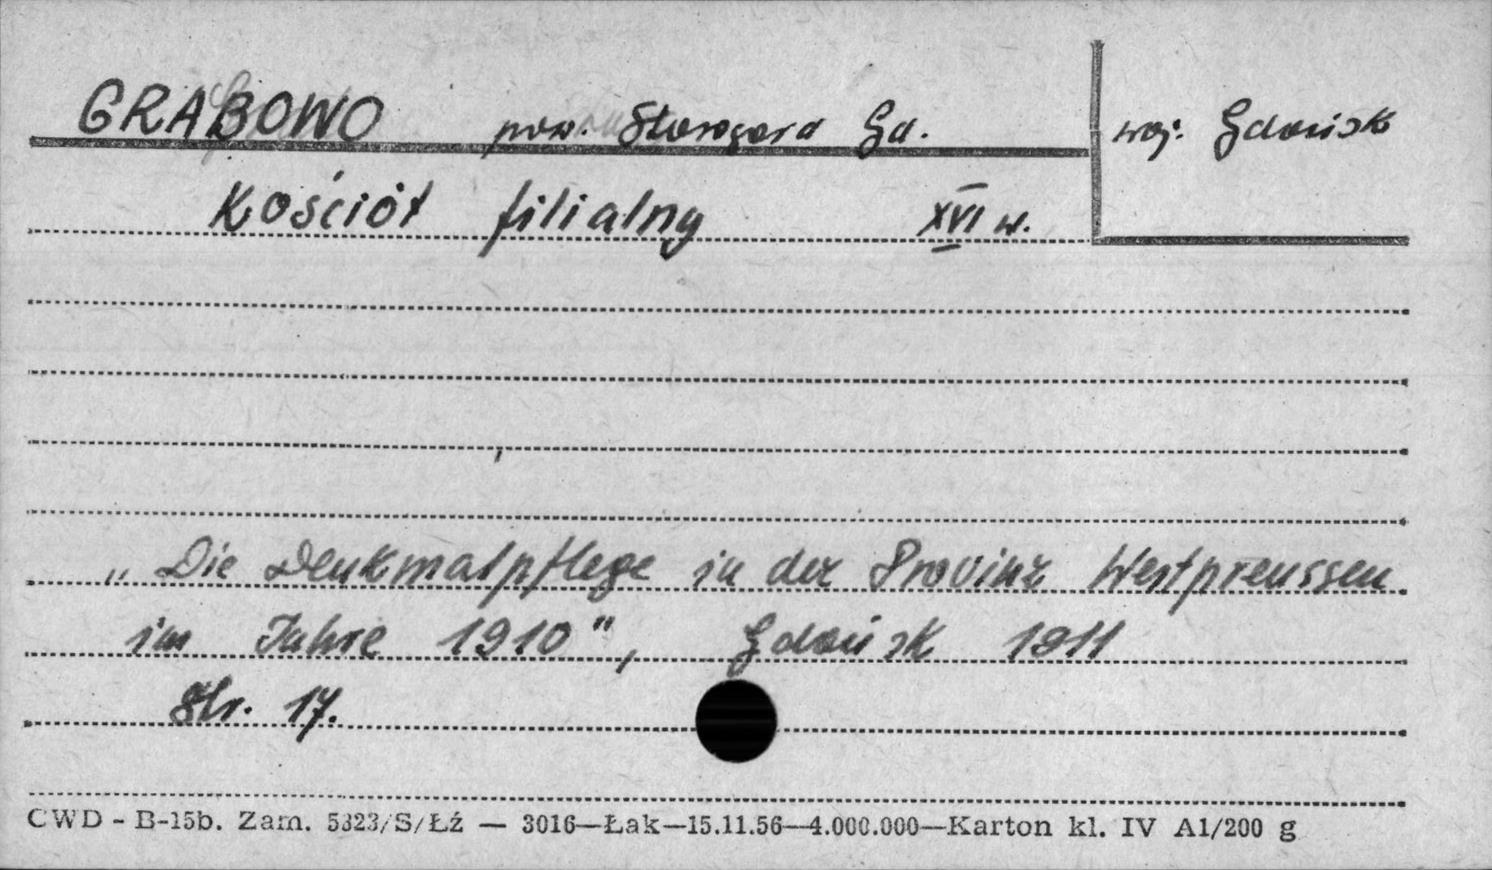 GRABOWO pow. Starogard Gd. woj. Gdańsk
Kościół filialny XVI w.
„Die Denkmalpflege in der Provinz Westpreussen
im Jahre 1910", Gdańsk 1911
Str. 17.
CWD - B-15b. Zam. 5323/S/Łź — 3016—Łak—15.11.56—4.000.000—Karton kl. IV A1/200 g